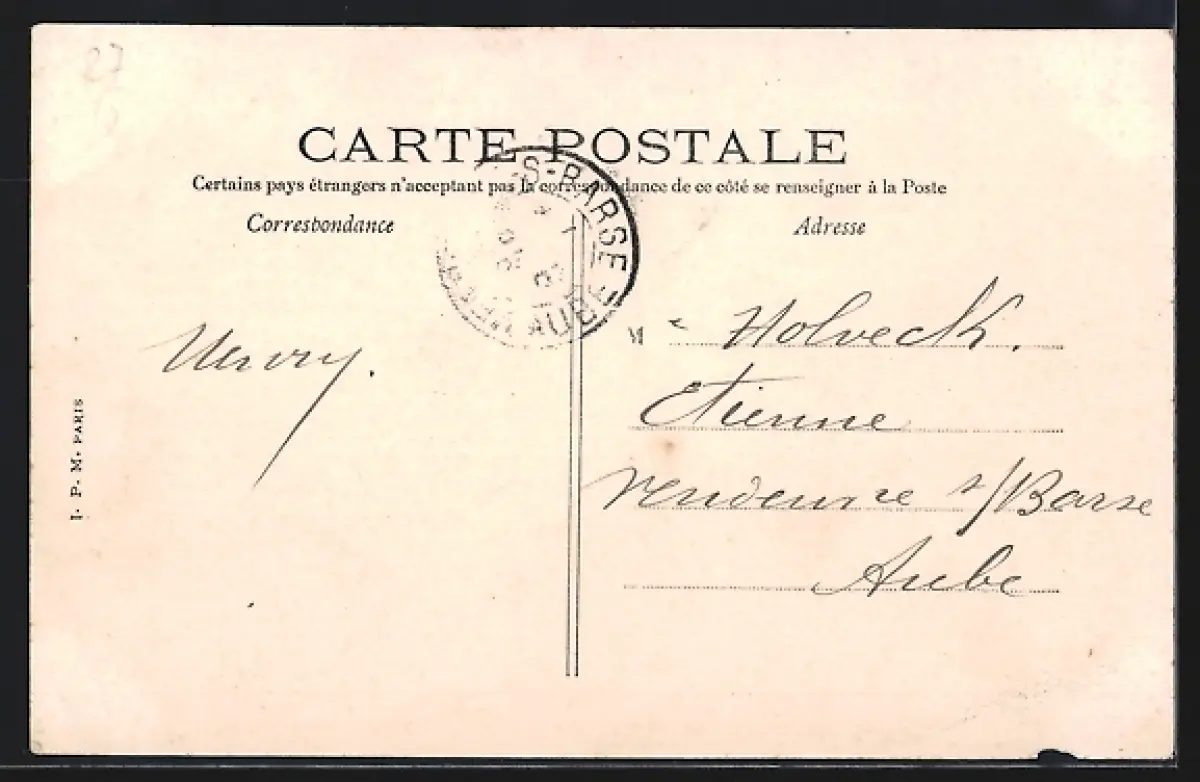 27
CARTE POSTALE
Certains pays étrangers n'acceptant pas la correspondance de ce côté se renseigner à la Poste
Correspondance
Adresse
S-BARSE
AUBE
M Holveck.
Etienne
Vendeuvre s/Barse
Aube
I. P. M. PARIS